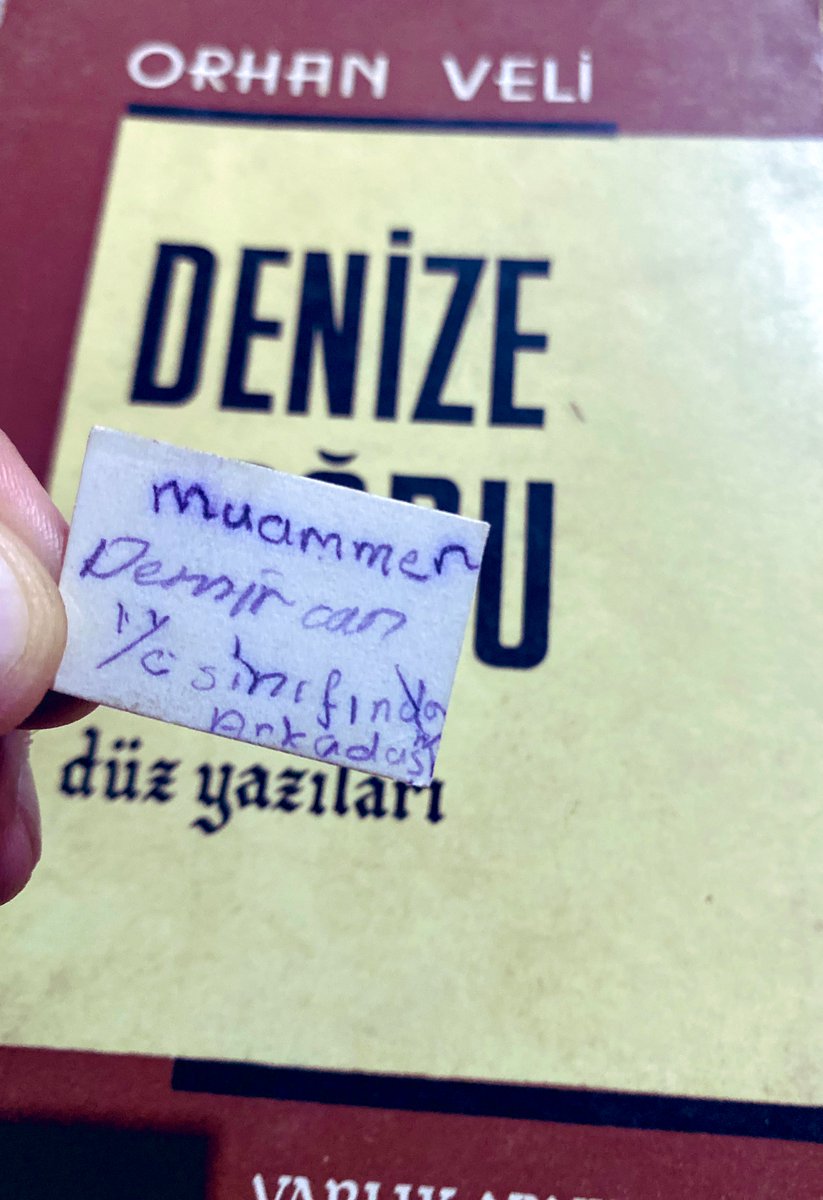 ORHAN VELİ
DENİZE
muammer
Demir can
sınıfında
Arkadaş
düz yazıları
VARLIK